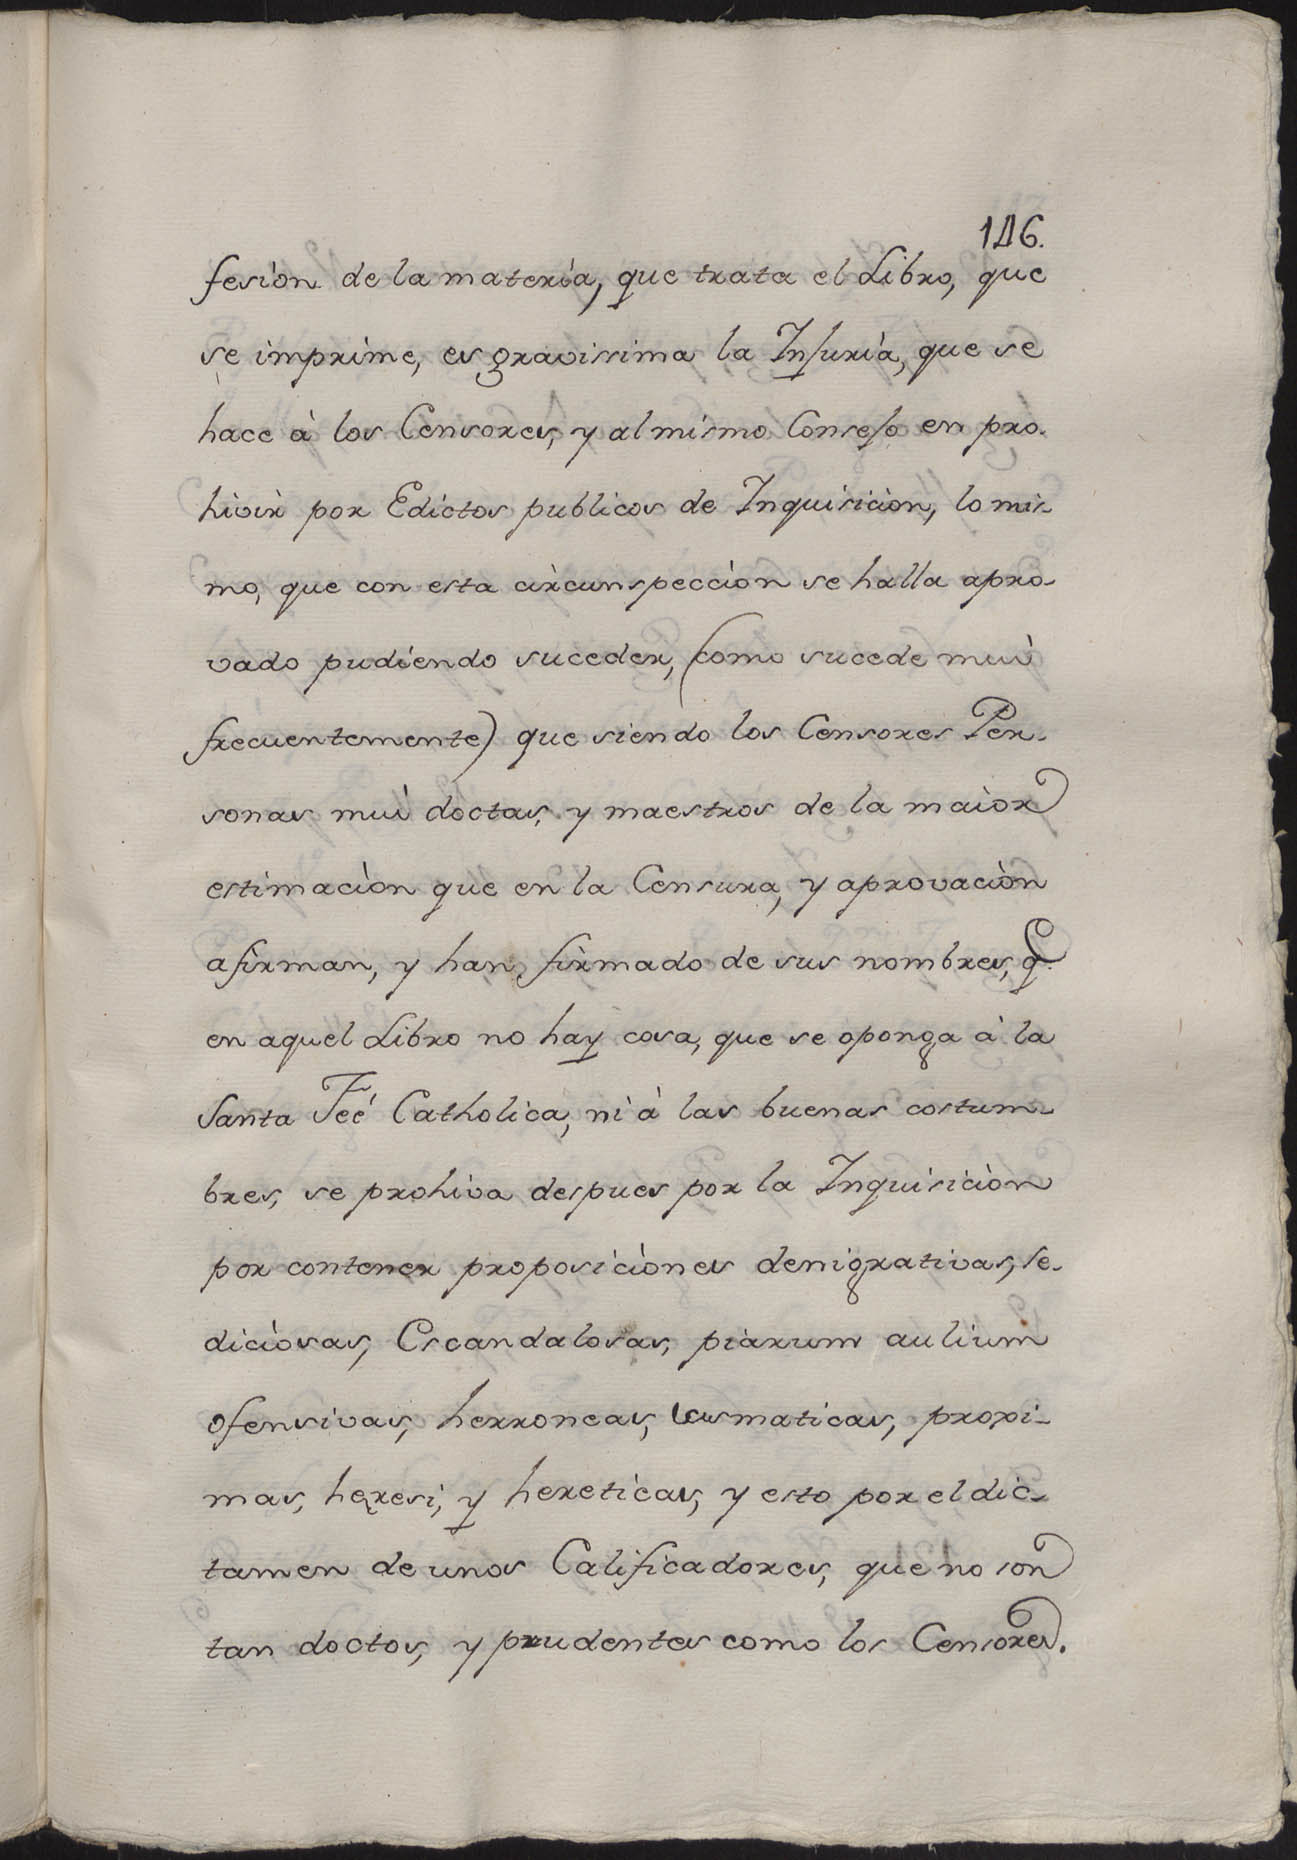 146.
fesiòn de la materìa, que trata el Libro, que
se imprime, es gravissima la Injurìa, que se
hace à los Censores, y al mismo Consejo en pro-
hivir por Edictos publicos de Inquisiciòn, lo mis-
mo, que con esta circunspecciòn se halla apro-
vado pudiendo suceder, (como sucede muì
frecuentemente) que siendo los Censores Per-
sonas muì doctas, y maestros de la maìor
estimaciòn que en la Censura, y aprovaciòn
afirman, y han firmado de sus nombres, q.
en aquel Libro no hay cosa, que se oponga à la
Santa Feé Catholica, ni à las buenas costum-
bres, se prohiva despues por la Inquisiciòn
por contener proposiciònes denigrativas, se-
diciòsas, Escandalosas, piàrum aulium
ofensivas, herroneas, cusmaticas, proxi-
mas, heresi, y hereticas, y esto por el dic-
tamen de unos Calificadores, que no son
tan doctos, y prudentes como los Censores.